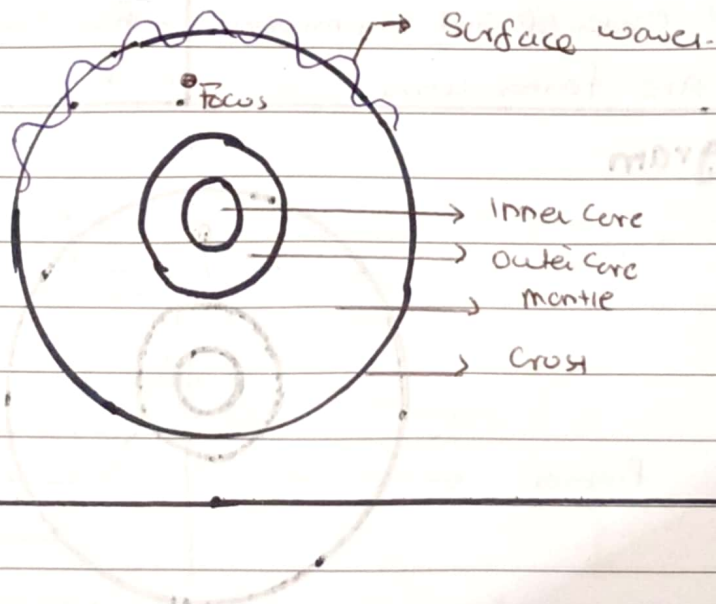 Surface waves.
Focus
Inner Core
Outer Core
mantle
Crust